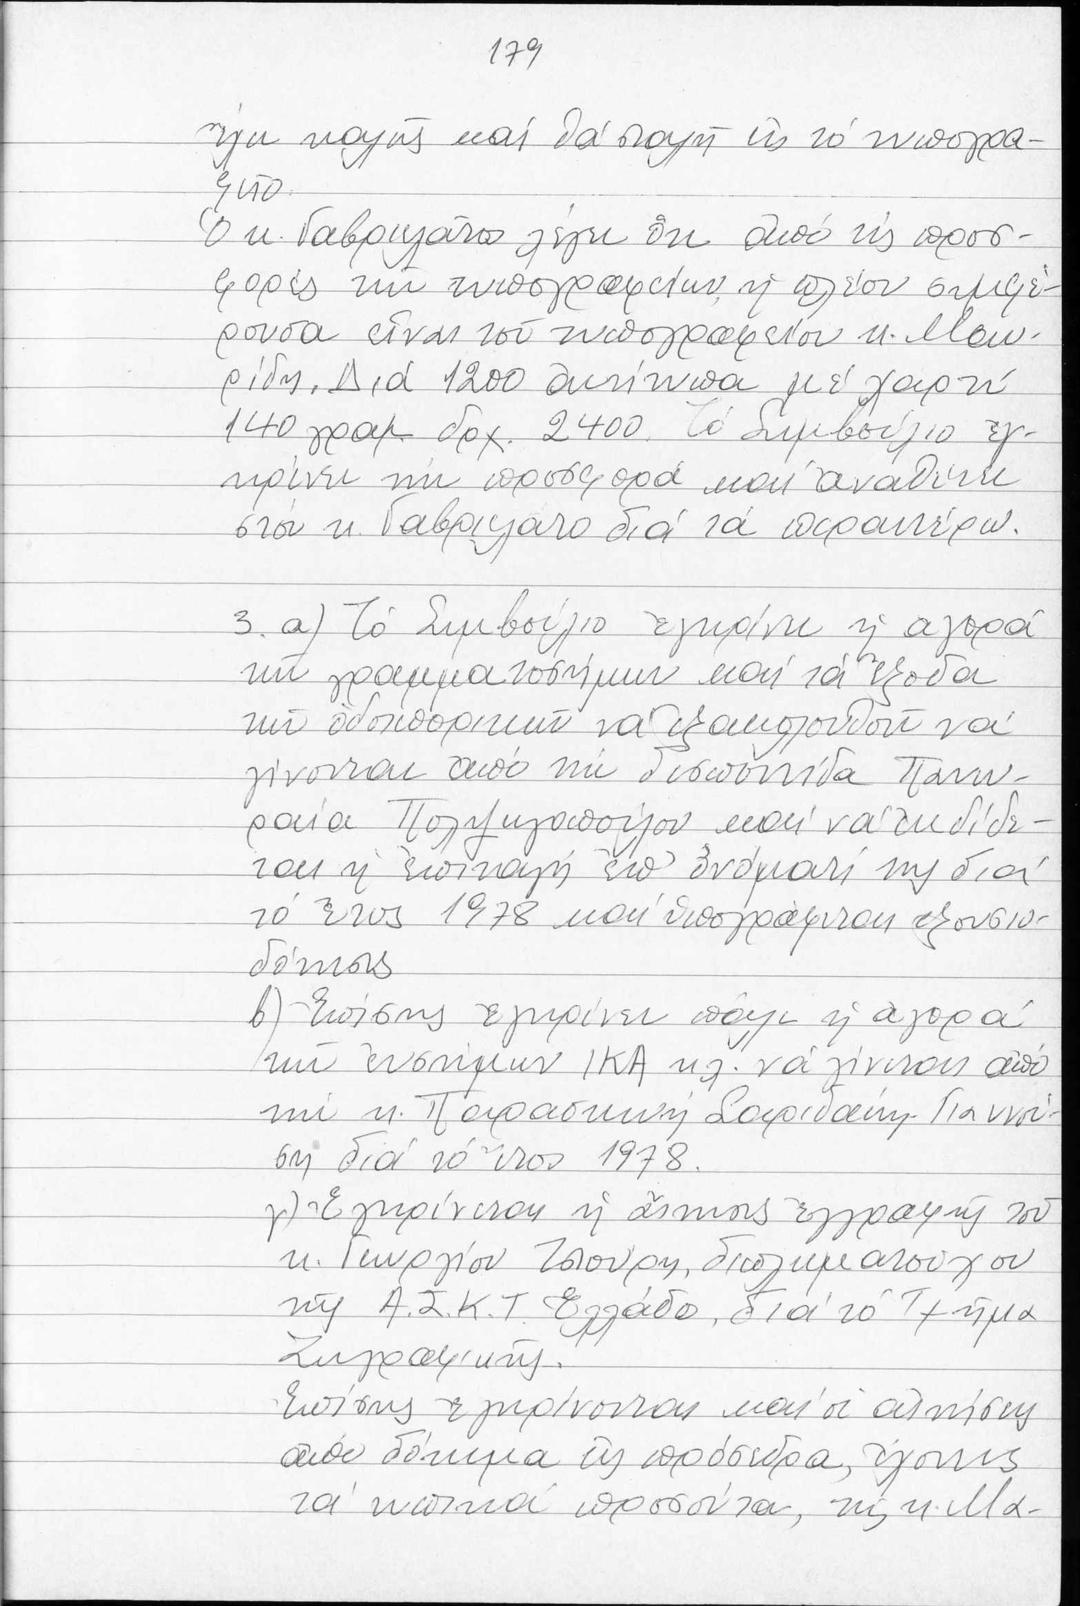 179
ἔχει καλῶς καί θά σταλῇ εἰς τό τυπογρα-
φεῖο.
Ὁ κ. Γαβριελᾶτος λέγει ὅτι ἀπό τίς προσ-
φορές τῶν τυπογραφείων, ἡ πλέον συμφέ-
ρουσα εἶναι τοῦ τυπογραφείου κ. Μαυ-
ρίδη. Διά 1200 ἀντίτυπα μέ χαρτί
140 γραμ. δρχ. 2400. Τό Συμβούλιο ἐγ-
κρίνει τήν προσφορά καί ἀναθέτει
στόν κ. Γαβριελᾶτο διά τά περαιτέρω.
3. α) Τό Συμβούλιο ἐγκρίνει ἡ ἀγορά
τῶν γραμματοσήμων καί τά ἔξοδα
τῶν ὁδοιπορικῶν νά ἐξακολουθοῦν νά
γίνονται ἀπό τήν δεσποινίδα Παγω-
ραία Πολυχλοπούλου καί νά ἐκδίδε-
ται ἡ ἐπιταγή ἐπ' ὀνόματί της διά
τό ἔτος 1978 καί ὑπογράφεται ἐξουσιο-
δότησις
β) Ἐπίσης ἐγκρίνει πάλι ἡ ἀγορά
τῶν ἐνσήμων ΙΚΑ κλ. νά γίνεται ἀπό
τήν κ. Παρασκευή Σαριδάκη-Γιαννού-
ση διά τό ἔτος 1978.
γ) Ἐγκρίνεται ἡ αἴτησις ἐγγραφῆς τοῦ
κ. Γεωργίου Τσούρη, διπλωματούχου
τῆς Α.Σ.Κ.Τ. Ἑλλάδος, διά τό Τμῆμα
Ζωγραφικῆς.
Ἐπίσης ἐγκρίνονται καί οἱ αἰτήσεις
ἀπό δόκιμα εἰς πρόσεδρα, ἔχοντες
τά τυπικά προσόντα, τῆς κ. Μα-